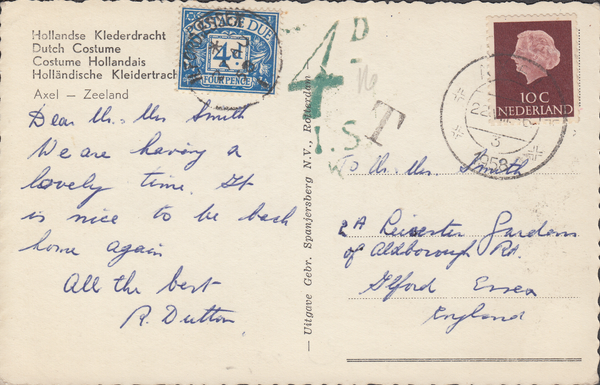 Hollandse Klederdracht
Dutch Costume
Costume Hollandais
Holländische Kleidertrach
Axel — Zeeland
Dear Mr. Mrs Smith
We are having a
lovely time. It
is nice to be back
home again
All the best
R. Dutton
POSTAGE DUE
4d
FOUR PENCE
4 D
T
I.S.
— Uitgave Gebr. Spanjersberg N.V., Rotterdam —
10 C
NEDERLAND
3
1958
To Mr. Mrs. Smith
2A Leicester Gardens
of Aldborough Rd.
Ilford Essex
England